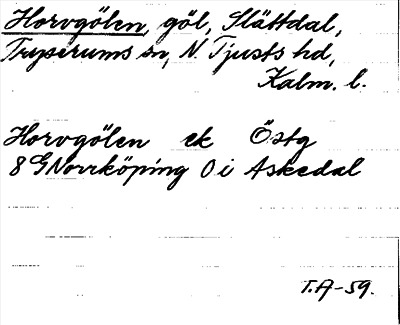 Horvgölen, göl, Slättdal,
Tryserums sn, N. Tjusts hd,
Kalm. l.
Horvgölen ek Östg
8 G Norrköping 0 i Askedal
T.A-59.